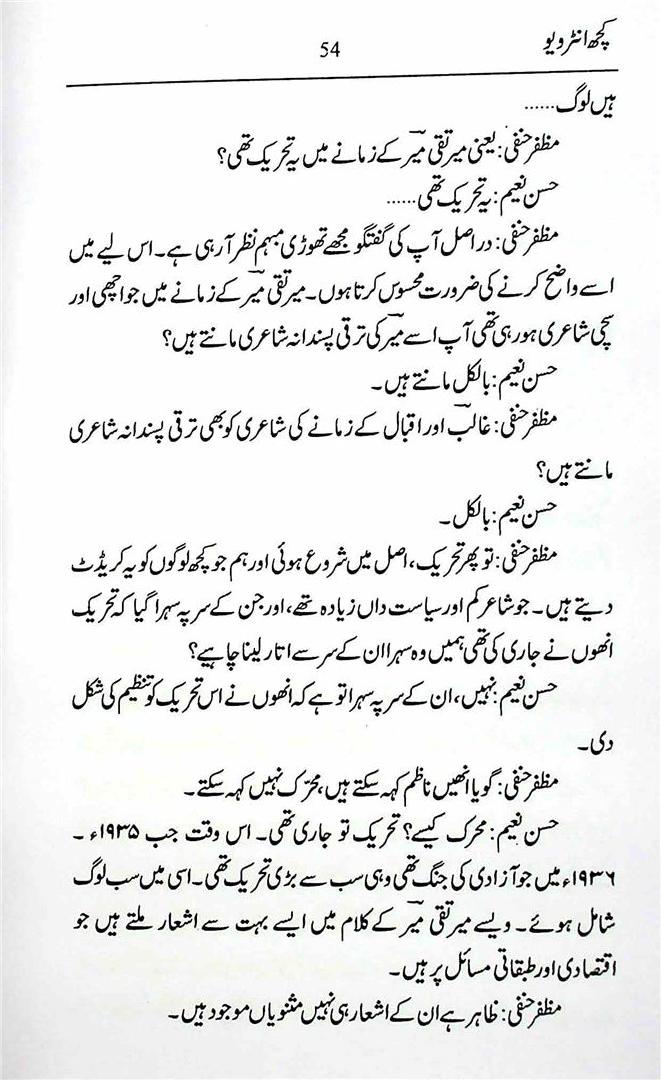 کچھ انٹرویو
54
ہیں لوگ......
مظفر حنفی: یعنی میر تقی میرؔ کے زمانے میں یہ تحریک تھی؟
حسن نعیم: یہ تحریک تھی......
مظفر حنفی: دراصل آپ کی گفتگو مجھے تھوڑی مبہم نظر آ رہی ہے۔ اس لیے میں
اسے واضح کرنے کی ضرورت محسوس کرتا ہوں۔ میر تقی میرؔ کے زمانے میں جو اچھی اور
سچی شاعری ہو رہی تھی آپ اسے میرؔ کی ترقی پسندانہ شاعری مانتے ہیں؟
حسن نعیم: بالکل مانتے ہیں۔
مظفر حنفی: غالبؔ اور اقبال کے زمانے کی شاعری کو بھی ترقی پسندانہ شاعری
مانتے ہیں؟
حسن نعیم: بالکل۔
مظفر حنفی: تو پھر تحریک، اصل میں شروع ہوئی اور ہم جو کچھ لوگوں کو یہ کریڈٹ
دیتے ہیں۔ جو شاعر کم اور سیاست داں زیادہ تھے، اور جن کے سر پہ سہرا گیا کہ تحریک
انھوں نے جاری کی تھی ہمیں وہ سہرا ان کے سر سے اتار لینا چاہیے؟
حسن نعیم: نہیں، ان کے سر پہ سہرا تو ہے کہ انھوں نے اس تحریک کو تنظیم کی شکل
دی۔
مظفر حنفی: گویا انھیں ناظم کہہ سکتے ہیں، محرّک نہیں کہہ سکتے۔
حسن نعیم: محرک کیسے؟ تحریک تو جاری تھی۔ اس وقت جب ۱۹۳۵ء۔
۱۹۳۶ء میں جو آزادی کی جنگ تھی وہی سب سے بڑی تحریک تھی۔ اسی میں سب لوگ
شامل ہوئے۔ ویسے میر تقی میرؔ کے کلام میں ایسے بہت سے اشعار ملتے ہیں جو
اقتصادی اور طبقاتی مسائل پر ہیں۔
مظفر حنفی: ظاہر ہے ان کے اشعار ہی نہیں مثنویاں موجود ہیں۔